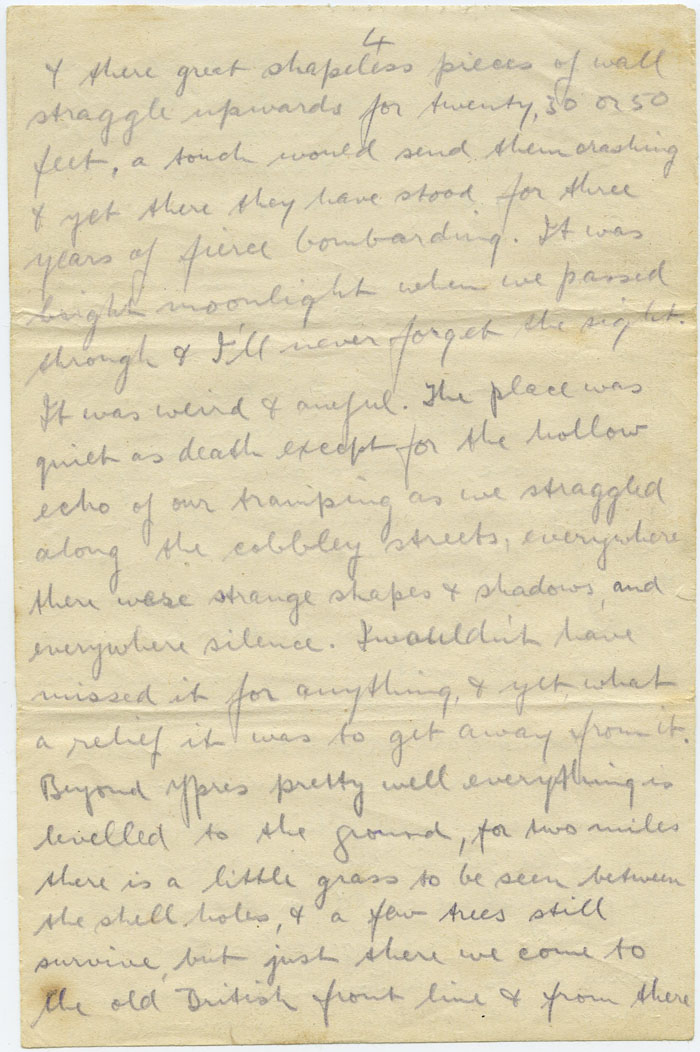 4
& there great shapeless pieces of wall
straggle upwards for twenty, 30 or 50
feet, a touch would send them crashing
& yet there they have stood for three
years of fierce bombarding. It was
bright moonlight when we passed
through & I'll never forget the sight.
It was weird & awful. The place was
quiet as death except for the hollow
echo of our tramping as we straggled
along the cobbley streets, everywhere
there were strange shapes & shadows, and
everywhere silence. I wouldn't have
missed it for anything, & yet what
a relief it was to get away from it.
Beyond Ypres pretty well everything is
levelled to the ground, for two miles
there is a little grass to be seen between
the shell holes, & a few trees still
survive, but just there we come to
the old British front line & from there